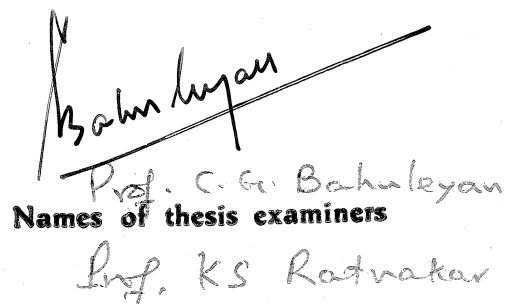 Bahuleyan
Prof. C. G. Bahuleyan
Names of thesis examiners
Prof. KS Ratnakar